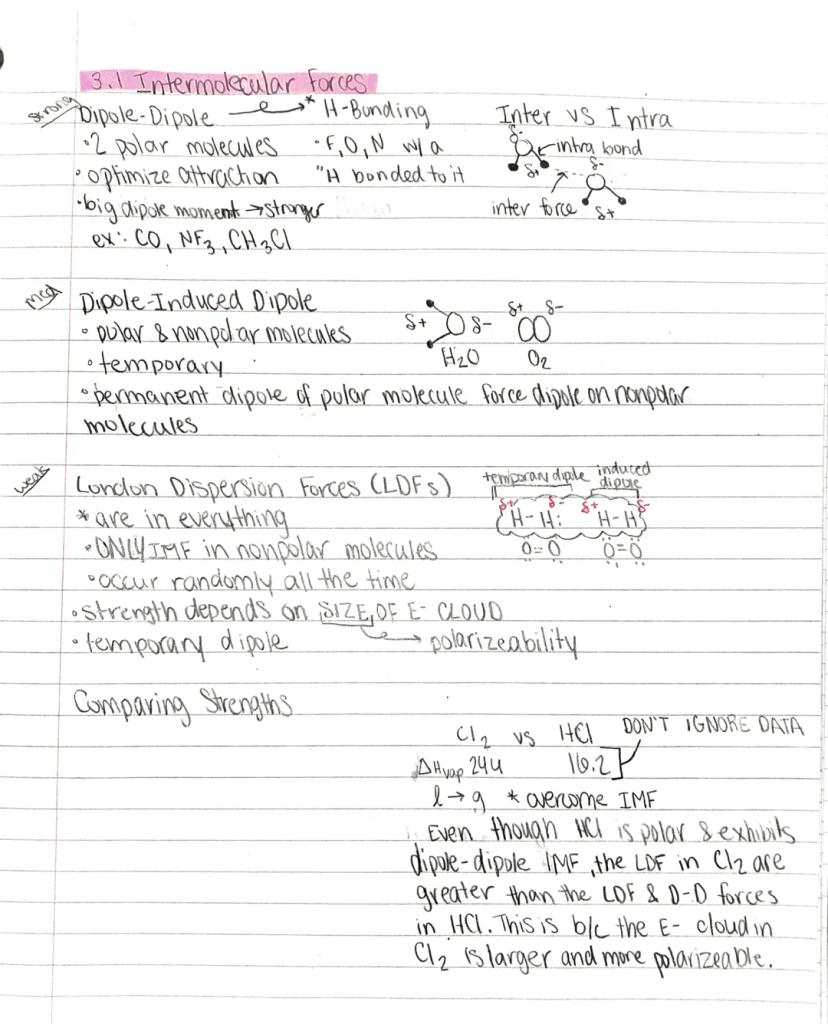 3.1 Intermolecular Forces
strong
Dipole-Dipole * H-Bonding
• 2 polar molecules • F, O, N w/ a
• optimize attraction "H bonded to it
• big dipole moment → stronger
ex: CO, NF3, CH3Cl
Inter vs Intra
δ-
intra bond
δ+ δ-
inter force δ+
med
Dipole-Induced Dipole
• polar & nonpolar molecules
• temporary
δ+ δ- δ+ δ-
H2O O2
• permanent dipole of polar molecule force dipole on nonpolar
molecules
weak
London Dispersion Forces (LDFs)
* are in everything
• ONLY IMF in nonpolar molecules
• occur randomly all the time
• strength depends on SIZE OF E- CLOUD
• temporary dipole → polarizeability
temporary diple induced
dipole
δ+ δ- δ+ δ-
H-H: H-H
O=O O=O
Comparing Strengths
Cl2 vs HCl DON'T IGNORE DATA
ΔHvap 16.2
l → g * overcome IMF
Even though HCl is polar & exhibits
dipole-dipole IMF, the LDF in Cl2 are
greater than the LDF & D-D forces
in HCl. This is b/c the E- cloud in
Cl2 is larger and more polarizeable.